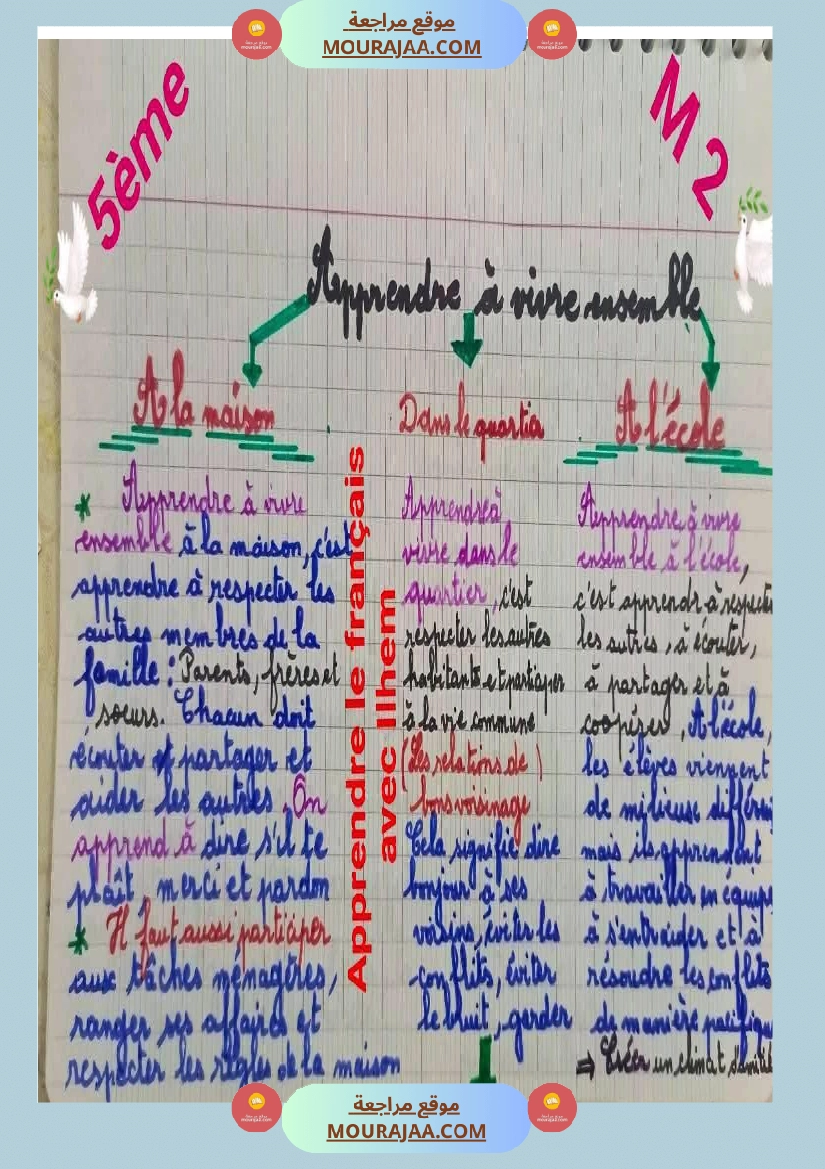 موقع مراجعة
MOURAJAA.COM
5ème
M 2
Apprendre à vivre ensemble
A la maison
* Apprendre à vivre
ensemble à la maison, c'est
apprendre à respecter les
autres membres de la
famille : Parents, frères et
soeurs. Chacun doit
écouter et partager et
aider les autres. On
apprend à dire s'il te
plaît, merci et pardon
* Il faut aussi participer
aux tâches ménagères,
ranger ses affaires et
respecter les règles de la maison
Apprendre le français
avec Ilhem
Dans le quartier
Apprendre à
vivre dans le
quartier, c'est
respecter les autres
habitants et participer
à la vie commune
(Les relations de )
bons voisinage
Cela signifie dire
bonjour à ses
voisins, éviter les
conflits, éviter
le bruit, garder
A l'école
Apprendre à vivre
ensemble à l'école,
c'est apprendr à respecter
les autres, à écouter,
à partager et à
coopérer, A l'école,
les élèves viennent
de milieux
mais ils apprendent
à travailler en équipe
à s'entraider et à
résoudre les conflits
de manière
⇒ Créer un climat
موقع مراجعة
MOURAJAA.COM